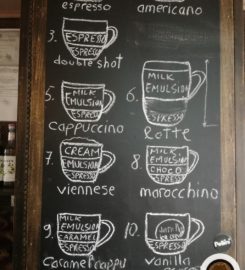 espresso
americano
3.
ESPRESSO
ESPRESSO
double shot
5.
MILK
EMULSION
ESPRESSO
cappuccino
6.
MILK
EMULSION
ESPRESSO
Rotte
7.
CREAM
EMULSION
ESPRESSO
viennese
8.
MILK
EMULSION
CHOCO
ESPRESSO
marocchino
9.
MILK
EMULSION
CARAMEL
ESPRESSO
Caramel cappu
10.
ESPRESSO
vanilla